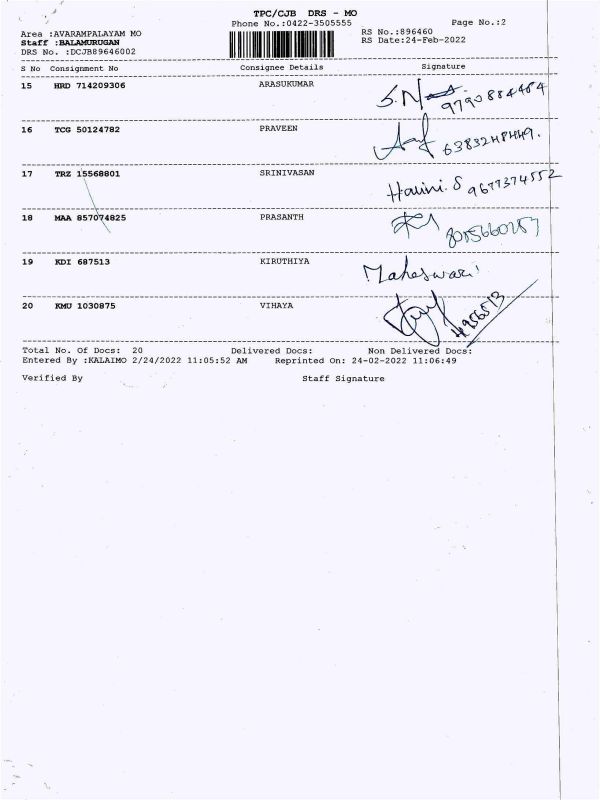 TPC/CJB DRS - MO
Phone No.:0422-3505555
Page No.:2
Area :AVARAMPALAYAM MO
RS No.:896460
Staff :BALAMURUGAN
RS Date:24-Feb-2022
DRS No. :DCJB89646002
S No Consignment No Consignee Details Signature
15 HRD 714209306 ARASUKUMAR
9790884484
16 TCG 50124782 PRAVEEN
17 TRZ 15568801 SRINIVASAN
Harini. S 9677374552
18 MAA 857074825 PRASANTH
19 KDI 687513 KIRUTHIYA
Maheswari
20 KMU 1030875 VIHAYA
Total No. Of Docs: 20 Delivered Docs: Non Delivered Docs:
Entered By :KALAIMO 2/24/2022 11:05:52 AM Reprinted On: 24-02-2022 11:06:49
Verified By Staff Signature